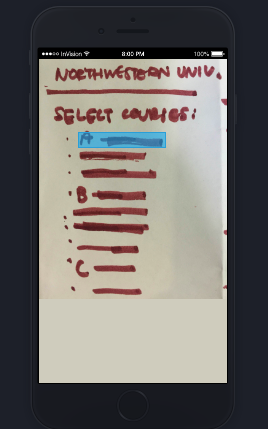 InVision 8:00 PM 100%
NORTHWESTERN UNIV.
SELECT COURSES:
A
B
C